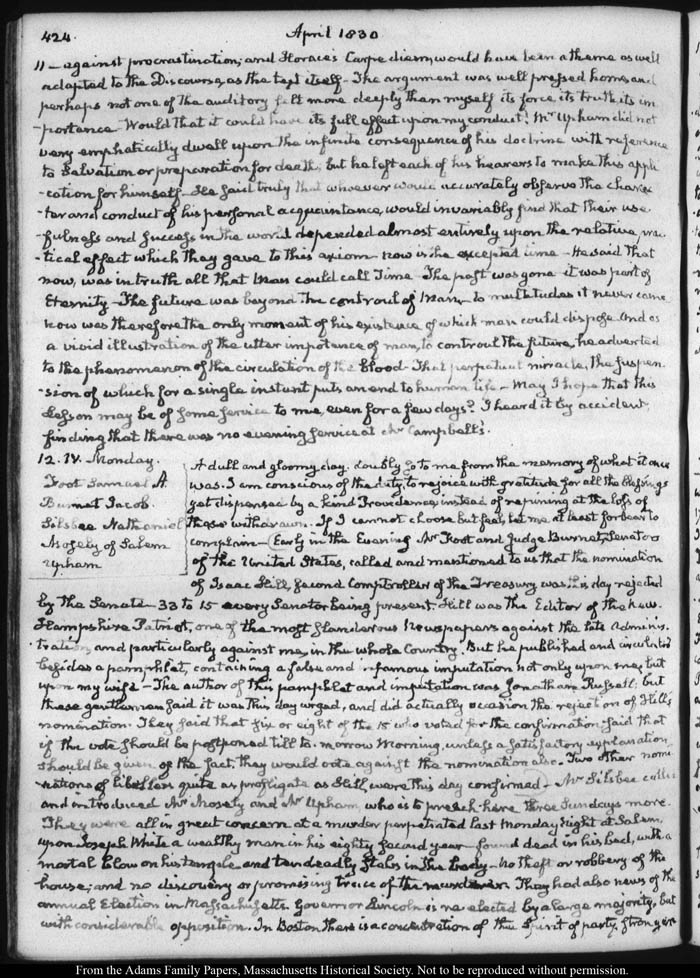 424.
April 1830
11 — against procrastination; and Horace's Carpe diem, would have been a theme as well
adapted to the Discourse, as the text itself - The argument was well pressed home, and
perhaps not one of the auditory felt more deeply than myself its force, its truth, its im
-portance - Would that it could have its full effect upon my conduct! Mr Upham did not
very emphatically dwell upon the infinite consequence of his doctrine with reference
to Salvation or preparation for death; but he left each of his hearers to make this appli
-cation for himself - He said truly that whoever would accurately observe the charac
-ter and conduct of his personal acquaintance, would invariably find that their use
-fulness and success in the world depended almost entirely upon the relative, prac
-tical effect which they gave to this axiom - now is the excepted time - He said that
now, was in truth all that Man could call Time - The past was gone - it was part of
Eternity - The future was beyond the controul of Man - to multitudes it never came
now was therefore the only moment of his existence of which man could dispose - And as
a vivid illustration of the utter impotence of man, to controul the future, he adverted
to the phenomenon of the circulation of the blood - That perpetual miracle, the suspen
-sion of which for a single instant puts an end to human life - May I hope that this
Lesson may be of some service to me, even for a few days? I heard it by accident,
finding that there was no evening service at Mr Campbell's.
12. IV. Monday.
Foot Samuel A.
Burnet Jacob.
Silsbee Nathaniel
Mosely of Salem
Upham
A dull and gloomy day. doubly so to me from the memory of what it once
was. I am conscious of the duty, to rejoice with gratitude for all the blessings
yet dispensed by a kind Providence instead of repining at the loss of
those withdrawn. If I cannot choose but feel, let me at least forbear to
complain - Early in the Evening Mr Foot and Judge Burnet, Senators
of the United States, called and mentioned to us that the nomination
of Isaac Hill, second Comptroller of the Treasury was this day rejected
by the Senate - 33 to 15 every Senator being present. Hill was the Editor of the New.
Hampshire Patriot, one of the most slanderous Newspapers against the late Adminis.
tration, and particularly against me, in the whole Country. But he published and circulated
besides a pamphlet, containing a false and infamous imputation not only upon me, but
upon my wife - The author of this pamphlet and imputation was Jonathan Russell; but
these gentlemen said it was this day urged, and did actually occasion the rejection of Hill's
nomination. They said that six or eight of the 15 who voted for the confirmation said that
if the vote should be postponed till to-morrow Morning, unless a satisfactory explanation
should be given of the fact, they would vote against the nomination also. Two other nomi
-nations of libellers quite as profligate as Hill, were this day confirmed - Mr Silsbee called
and introduced Mr Mosely and Mr Upham, who is to preach here three Sundays more.
They were all in great concern at a murder perpetrated last Monday Night at Salem,
upon Joseph White a wealthy man in his eighty second year - found dead in his bed, with a
mortal blow on his temple and ten deadly stabs in his body - No theft or robbery of the
house; and no discovery or promising trace of the murderer. They had also news of the
annual Election in Massachusetts. Governor Lincoln is re-elected by a large majority, but
with considerable opposition. In Boston there is a concentration of the Spirit of party, stronger
From the Adams Family Papers, Massachusetts Historical Society. Not to be reproduced without permission.